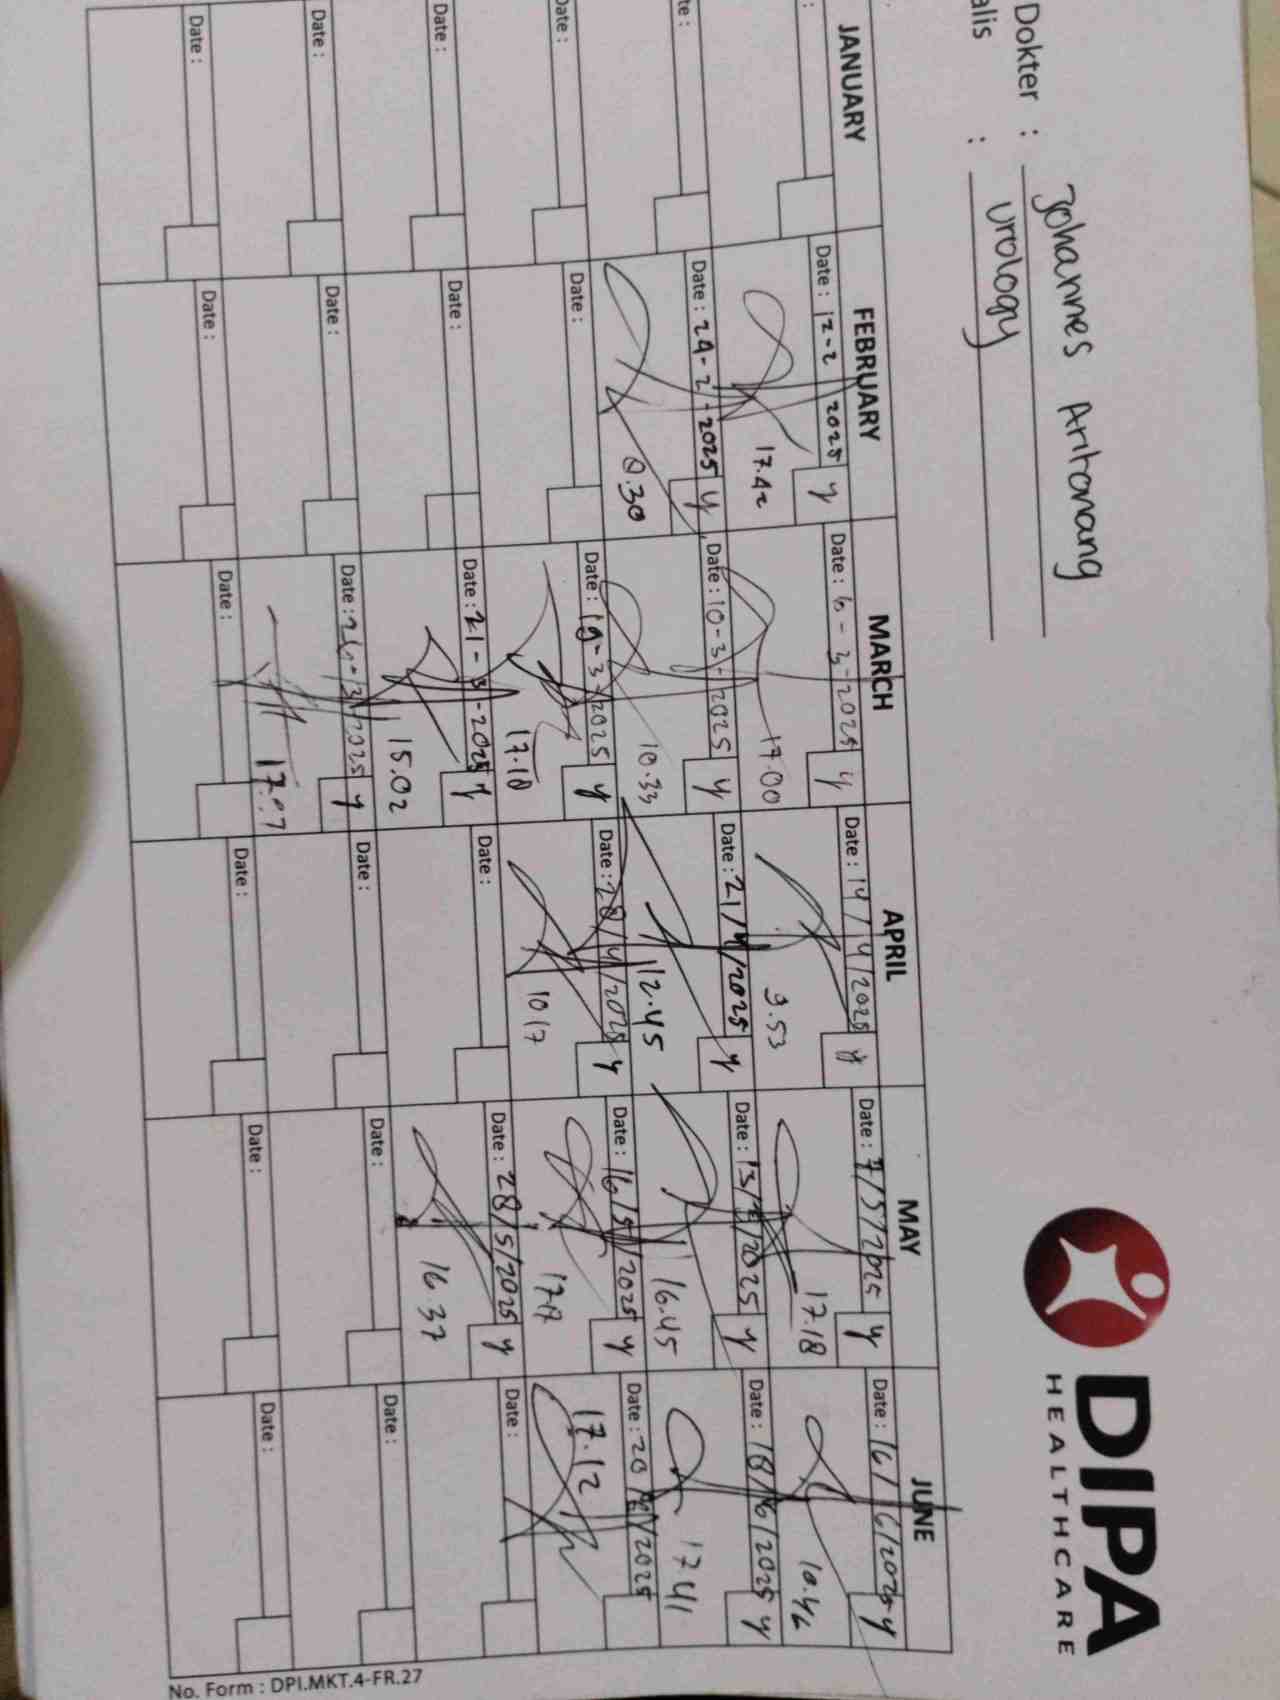 DIPA
HEALTHCARE
Dokter : Johannes Aritonang
alis : Urology
JANUARY FEBRUARY MARCH APRIL MAY JUNE
: Date : 12-2 2025 y Date : 6-3-2025 y Date : 14/4/2025 y Date : 7/5/2025 y Date : 16/6/2025 y
17.42 17.00 9.53 17.18 10.46
te : Date : 24-2-2025 y Date : 10-3-2025 y Date : 21/4/2025 y Date : 13/5/2025 y Date : 18/6/2025 y
8.30 10.33 12.45 16.45 17 41
Date : Date : Date : 19-3-2025 y Date : 28/4/2025 y Date : 16/5/2025 y Date : 20/6/2025
17.18 10 17 17.17 17.12
Date : Date : Date : 21-3-2025 y Date : Date : 28/5/2025 y Date :
15.02 16 37
Date : Date : Date : 26-3-2025 y Date : Date : Date :
Date : Date : Date : Date : Date : Date :
No. Form : DPI.MKT.4-FR.27